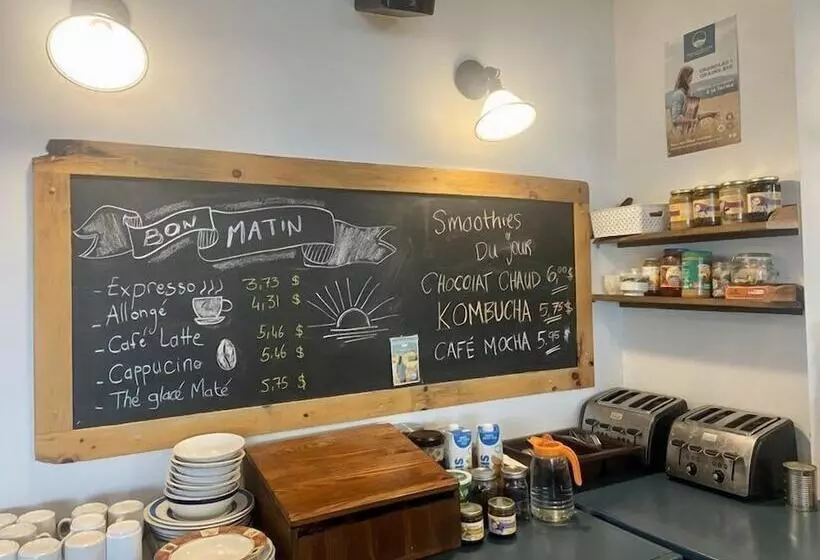 BON MATIN
- Expresso 3,73 $
- Allongé 4,31 $
- Café Latte 5,46 $
- Cappucino 5.46 $
- Thé glacé Maté 5,75 $
Smoothies
Du jour
CHOCOLAT CHAUD 6,00$
KOMBUCHA 5,75$
CAFÉ MOCHA 5.95$